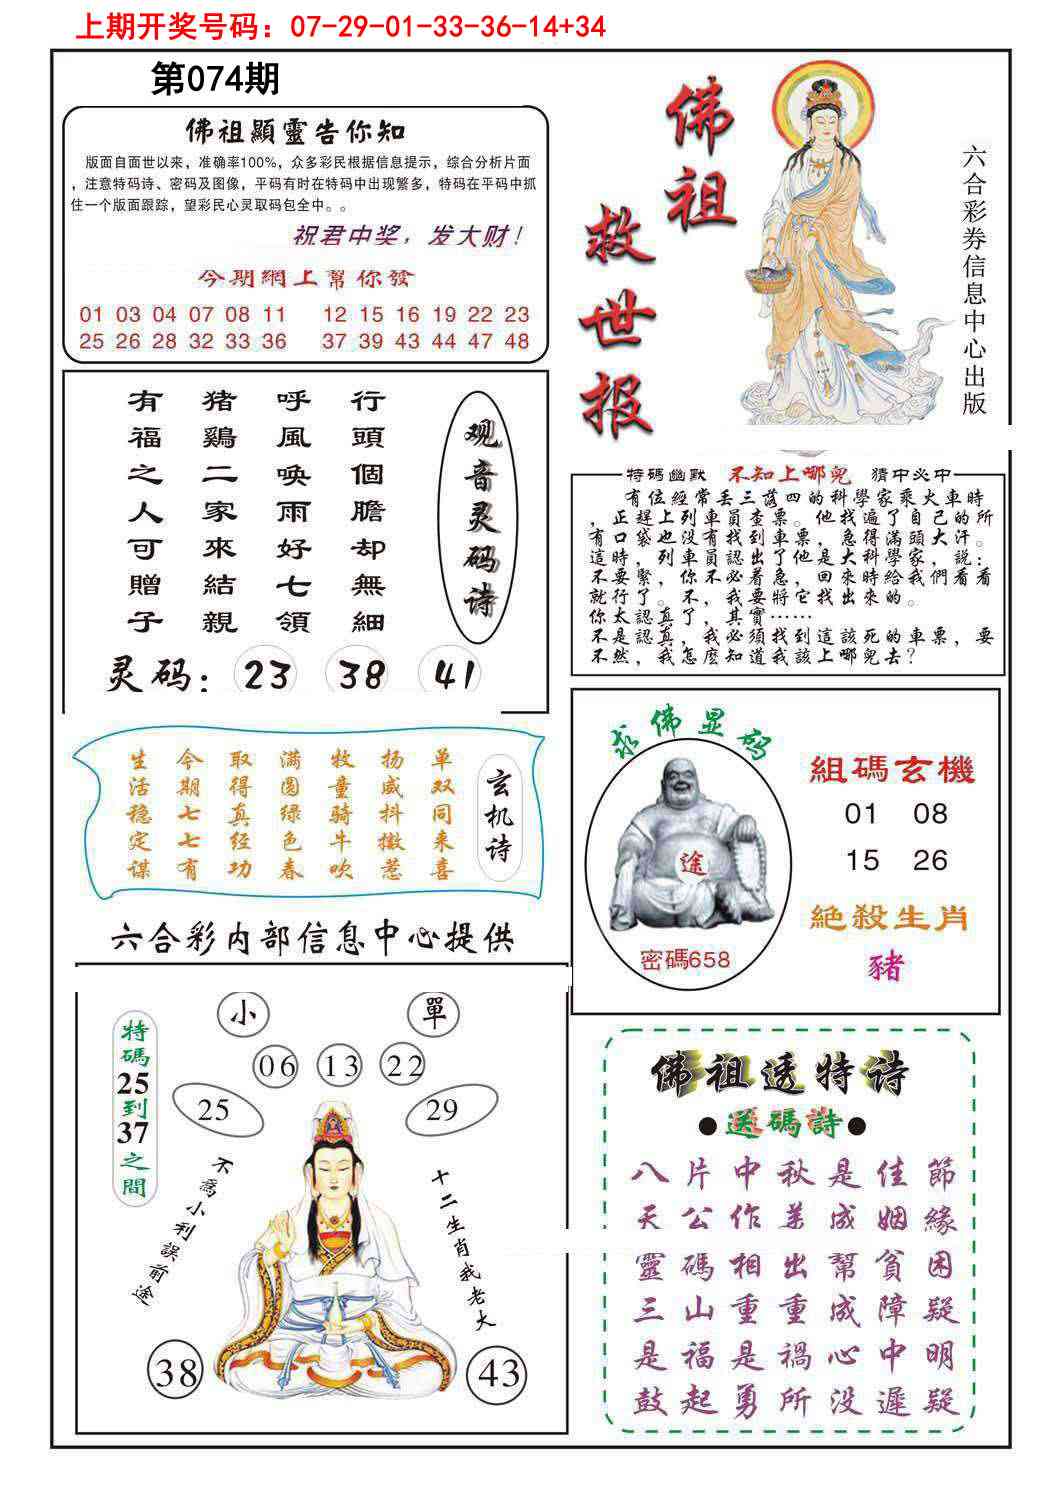 上期开奖号码：07-29-01-33-36-14+34
第074期
佛祖顯靈告你知
版面自面世以来，准确率100%，众多彩民根据信息提示，综合分析片面
，注意特码诗、密码及图像，平码有时在特码中出现繁多，特码在平码中抓
住一个版面跟踪，望彩民心灵取码包全中。。
祝君中奖，发大财！
今期網上幫你發
01 03 04 07 08 11 12 15 16 19 22 23
25 26 28 32 33 36 37 39 43 44 47 48
佛祖
救世报
六合彩券信息中心出版
观音灵码诗
行頭個膽却無細
呼風喚雨好七領
猪鷄二家來結親
有福之人可贈子
灵码：23 38 41
特碼幽默 不知上哪兒 猜中必中
有位經常丢三落四的科學家乘火車時
，正趕上列車員查票。他找遍了自己的所
有口袋也没有找到車票，急得滿頭大汗。
這時，列車員認出了他是大科學家，説：
不要緊，你不必着急，回來時給我們看看
就行了。不，我要將它找出來的。
你太認真了，其實……
不是認真，我必須找到這該死的車票，要
不然，我怎麽知道我該上哪兒去？
玄机诗
单双同来喜
扬威抖擞惹
牧童骑牛吹
满圆绿色春
取得真经功
今期七七有
生活稳定谋
六合彩内部信息中心提供
求佛显码
途
密碼658
組碼玄機
01 08
15 26
絶殺生肖
豬
小 單
06 13 22
25 29
特碼25到37之間
不爲小利誤前途
十二生肖我老大
38 43
佛祖透特诗
●送碼詩●
八片中秋是佳節
天公作美成姻緣
靈碼相出幫貧困
三山重重成障疑
是福是禍心中明
鼓起勇所没遲疑